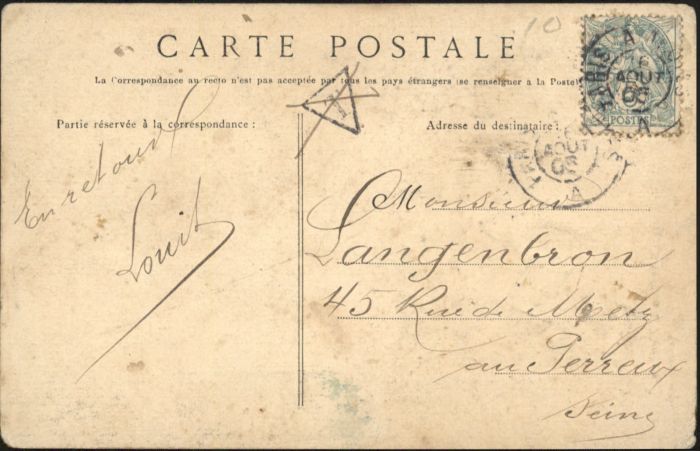 10
CARTE POSTALE
La Correspondance au recto n'est pas acceptée par tous les pays étrangers (se renseigner à la Poste)
Partie réservée à la correspondance :
Adresse du destinataire :
T
PARIS A
AOUT
05
POSTES
AOUT
A
En retour
Louit
Monsieur
Langenbron
45 Rue de Metz
au Perreux
Seine